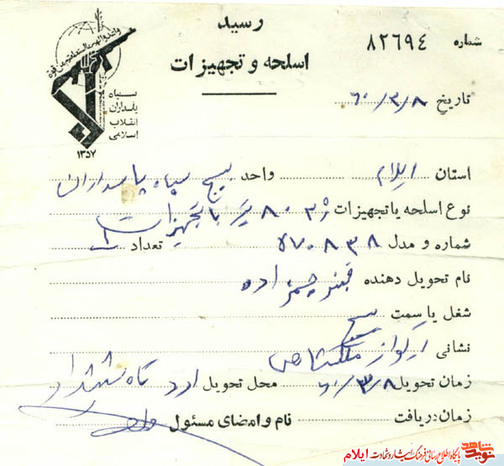 رسید
اسلحه و تجهیزات
شماره ۸۲۶۹۴
تاریخ ۶۰/۳/۸
سپاه
پاسداران
انقلاب
اسلامی
۱۳۵۷
استان ایلام واحد بسیج سپاه پاسداران
نوع اسلحه یا تجهیزات ژ۳ ۸۰ تیر با تجهیزات
شماره و مدل ۵۷۰۸۳۸ تعداد ۱
نام تحویل دهنده قنبر
شغل یا سمت بسیج
نشانی ارکواز ملکشاهی
زمان تحویل ۶۰/۳/۸ محل تحویل
زمان دریافت نام و امضای مسئول
پایگاه اطلاع رسانی فرهنگ ایثار و شهادت ایلام
نوید شاهد